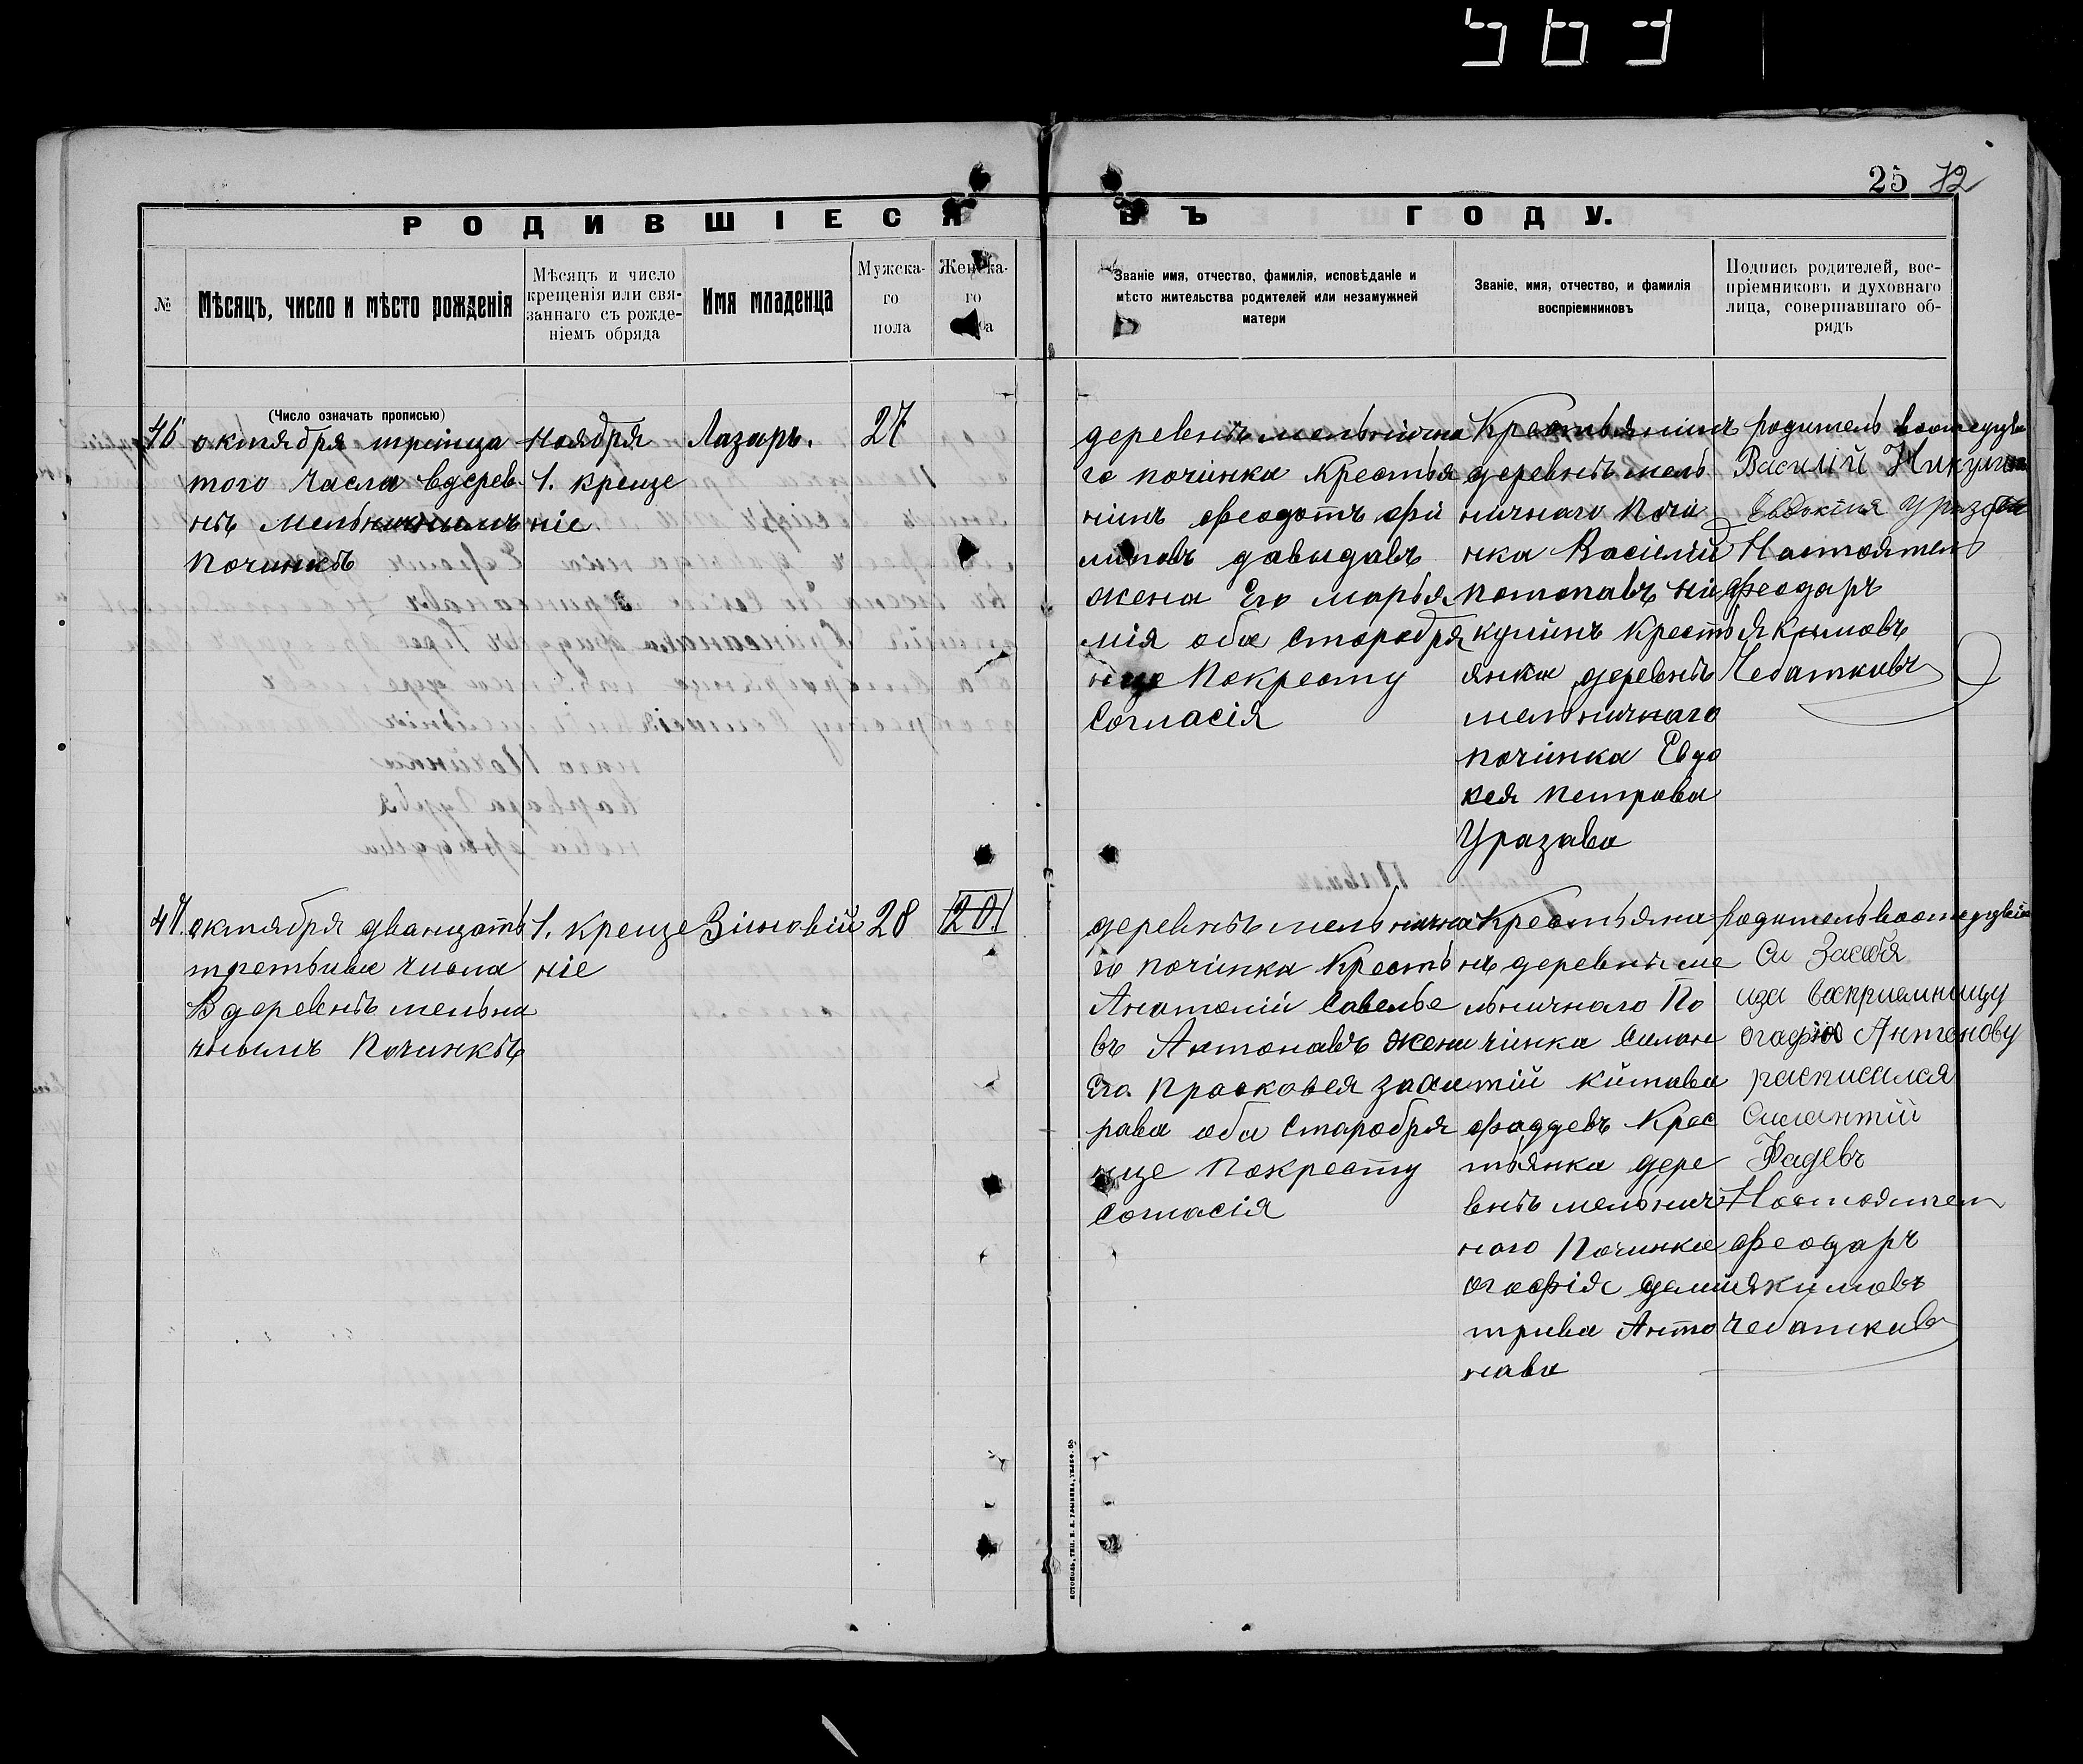 25 72
РОДИВШІЕСЯ ВЪ ГОДУ.
№
Мѣсяцъ, число и мѣсто рожденія
Мѣсяцъ и число
крещенія или свя-
заннаго съ рожде-
ніемъ обряда
Имя младенца
Мужска-
го
пола
Женска-
го
Званіе имя, отчество, фамилія, исповѣданіе и
мѣсто жительства родителей или незамужней
матери
Званіе, имя, отчество, и фамилія
воспріемниковъ
Подпись родителей, вос-
пріемниковъ и духовнаго
лица, совершавшаго об-
рядъ
(Число означать прописью)
46
октября тритца
того числа вдерев
нѣ мельничнымъ
починкѣ
ноября
1. креще
ніе
Лазарь.
27
деревнѣ мельнична
го починка Крестья
нинъ феодотъ фи
липовъ давыдавъ
жена Его марья
мія оба старобря
нце Покресту
Согласія
Крестьянинъ
деревнѣ мель
ничнаго почи
нка Василій
потапавъ ни
кулинъ крестья
янка деревнѣ
мельничнаго
починка Евдо
кея петрова
Уразава
родитель
Василій Никулин
Евдокия Уразова
Настоятель
феодаръ
Якимовъ
Чебатковъ
47
октября дванцоть
третьива числа
В деревнѣ мельни
чнымъ Починкѣ
1. креще
ніе
Зіновій
28
20
деревнѣ мельнична
го починка Кресть
Анатолій Савелье
въ Антонавъ жена
Его. Прасковея заха
рава оба Старобря
нце Покресту
Согласія
Крестьяни
нъ деревни ме
льничнаго По
чинка Силан
тій китава
фаддевъ Крес
тьянка дере
внѣ мельнич
ного Починка
огафія дими
трива Анто
нава
родитель
Си Засебя
иза восприемницу
огафию Антонову
расписался
Силантий
Фадевъ
Настоятель
феодаръ
якимовъ
Чебаткавъ